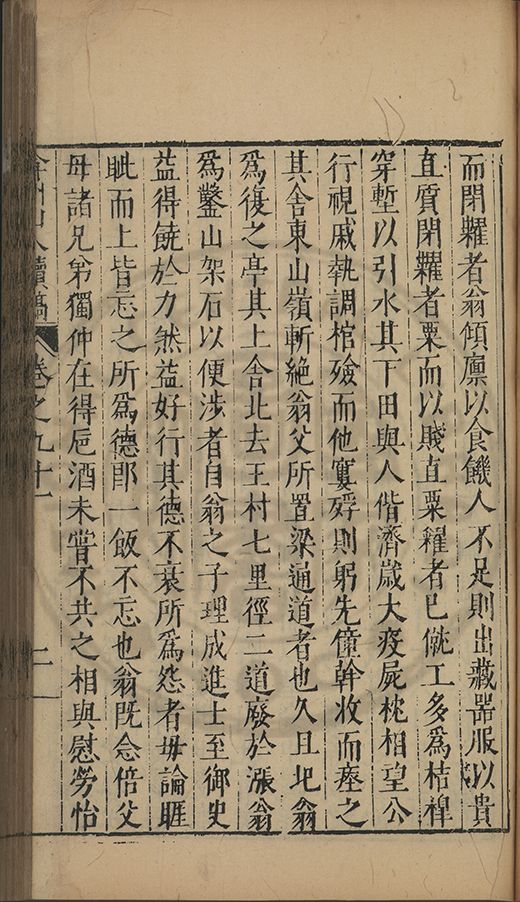 而閉糶者翁傾廪以食饑人不足則出藏器服以貴
直質閉糶者粟而以賤直粟糴者已僦工多為桔槔
穿塹以引水其下田與人偕濟歲大疫屍枕相望公
行視戚執調棺殮而他寠殍則躬先僮幹收而瘞之
其舍東山嶺斬絕翁父所置梁通道者也久且圯翁
為復之亭其上舍北去王村七里徑二道廢於漲翁
為鑿山架石以便涉者自翁之子理成進士至御史
益得饒於力然益好行其德不衰所為怨者毋論睚
眦而上皆忘之所為德即一飯不忘也翁既念倍父
母諸兄弟獨仲在得巵酒未嘗不共之相與慰勞怡
弇州山人續稿 卷之九十一 二